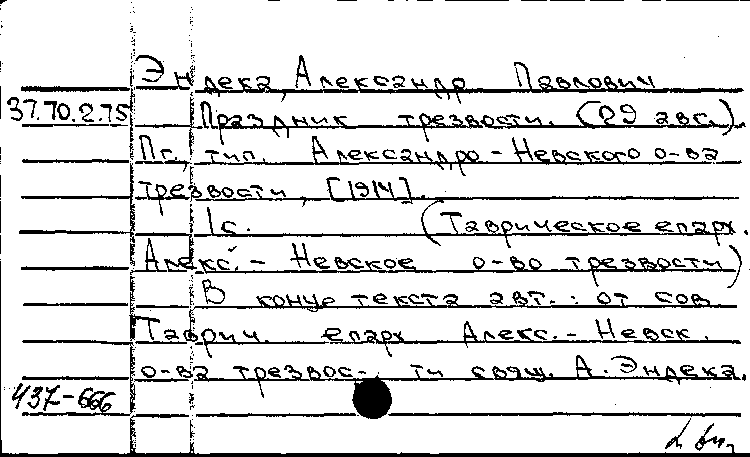 Эндека, Александр Павлович
37.70.2.75 Праздник трезвости. (29 авг.).
Пг., тип. Александро-Невского о-ва
трезвости, [1914].
1с. (Таврическое епарх.
Алекс.-Невское о-во трезвости)
В конце текста авт.: от сов.
Таврич. епарх Алекс.-Невск.
о-ва трезвос- ти свящ. А. Эндека.
437-666